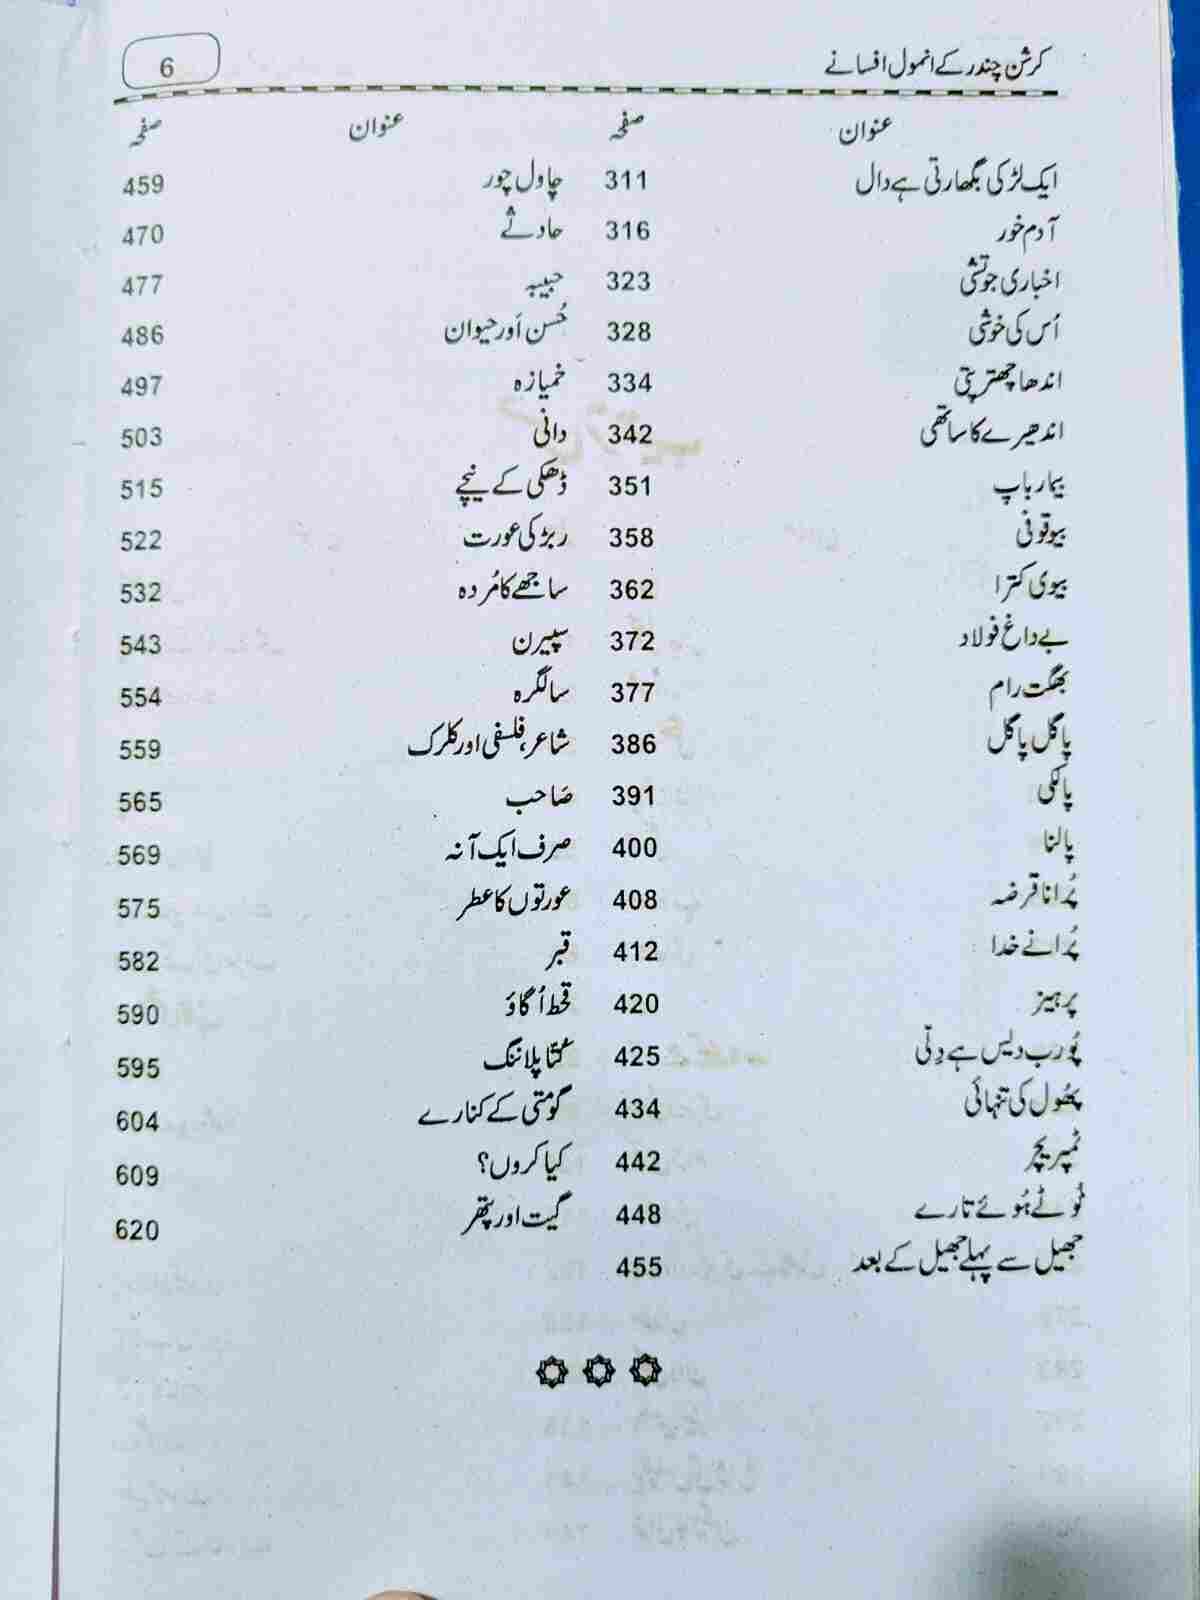 کرشن چندر کے انمول افسانے 6
عنوان صفحہ عنوان صفحہ
ایک لڑکی بگھارتی ہے دال 311 چاول چور 459
آدم خور 316 حادثے 470
اخباری جوتشی 323 حبیبہ 477
اُس کی خوشی 328 حُسن اَور حیوان 486
اندھا چھتر پتی 334 خمیازہ 497
اندھیرے کا ساتھی 342 دانی 503
بیمار باپ 351 ڈھکی کے نیچے 515
بیوقوفی 358 ربڑ کی عورت 522
بیوی کترا 362 ساجھے کا مُردہ 532
بے داغ فولاد 372 سپیرن 543
بھگت رام 377 سالگرہ 554
پاگل پاگل 386 شاعر، فلسفی اور کلرک 559
پالکی 391 صاحب 565
پالنا 400 صرف ایک آنہ 569
پُرانا قرضہ 408 عورتوں کا عطر 575
پُرانے خدا 412 قبر 582
پرہیز 420 قحط اُگاؤ 590
پُورب دیس ہے دِلّی 425 کُتّا پلاننگ 595
پھُول کی تنہائی 434 گومتی کے کنارے 604
ٹمپریچر 442 کیا کروں؟ 609
ٹوٹے ہُوئے تارے 448 گیت اور پتھر 620
جھیل سے پہلے جھیل کے بعد 455